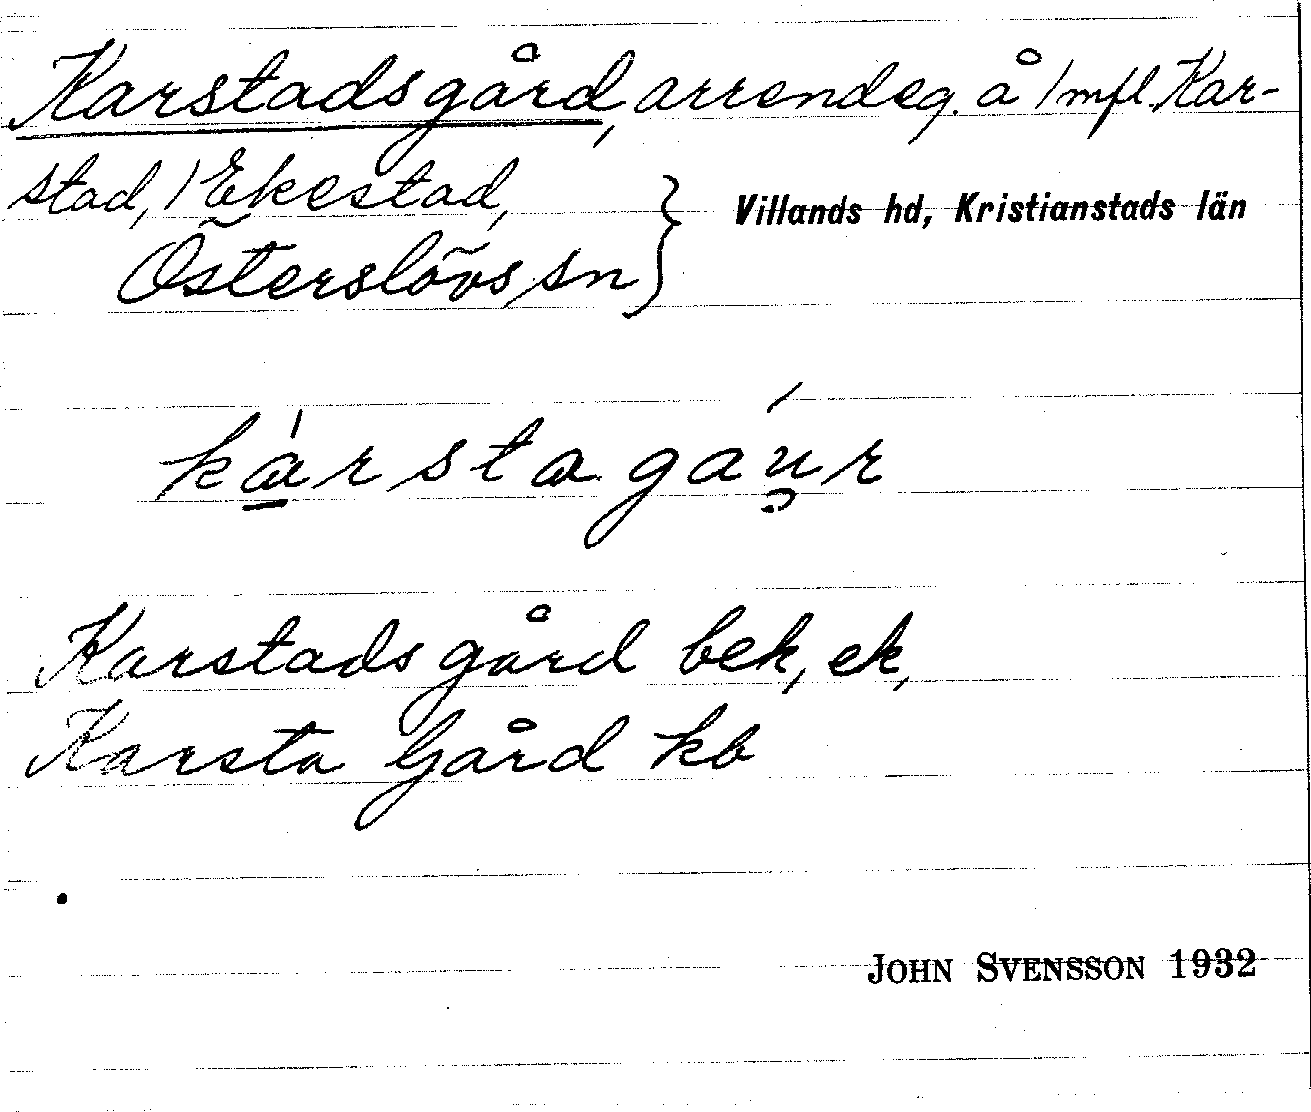 Karstadsgård, arrendeg. å 1 mfl. Kar-
stad, 1 Ekestad,
Österslövs sn } Villands hd, Kristianstads län
kárstagáu̯r
Karstadsgård bek, ek,
Karsta Gård kb
JOHN SVENSSON 1932